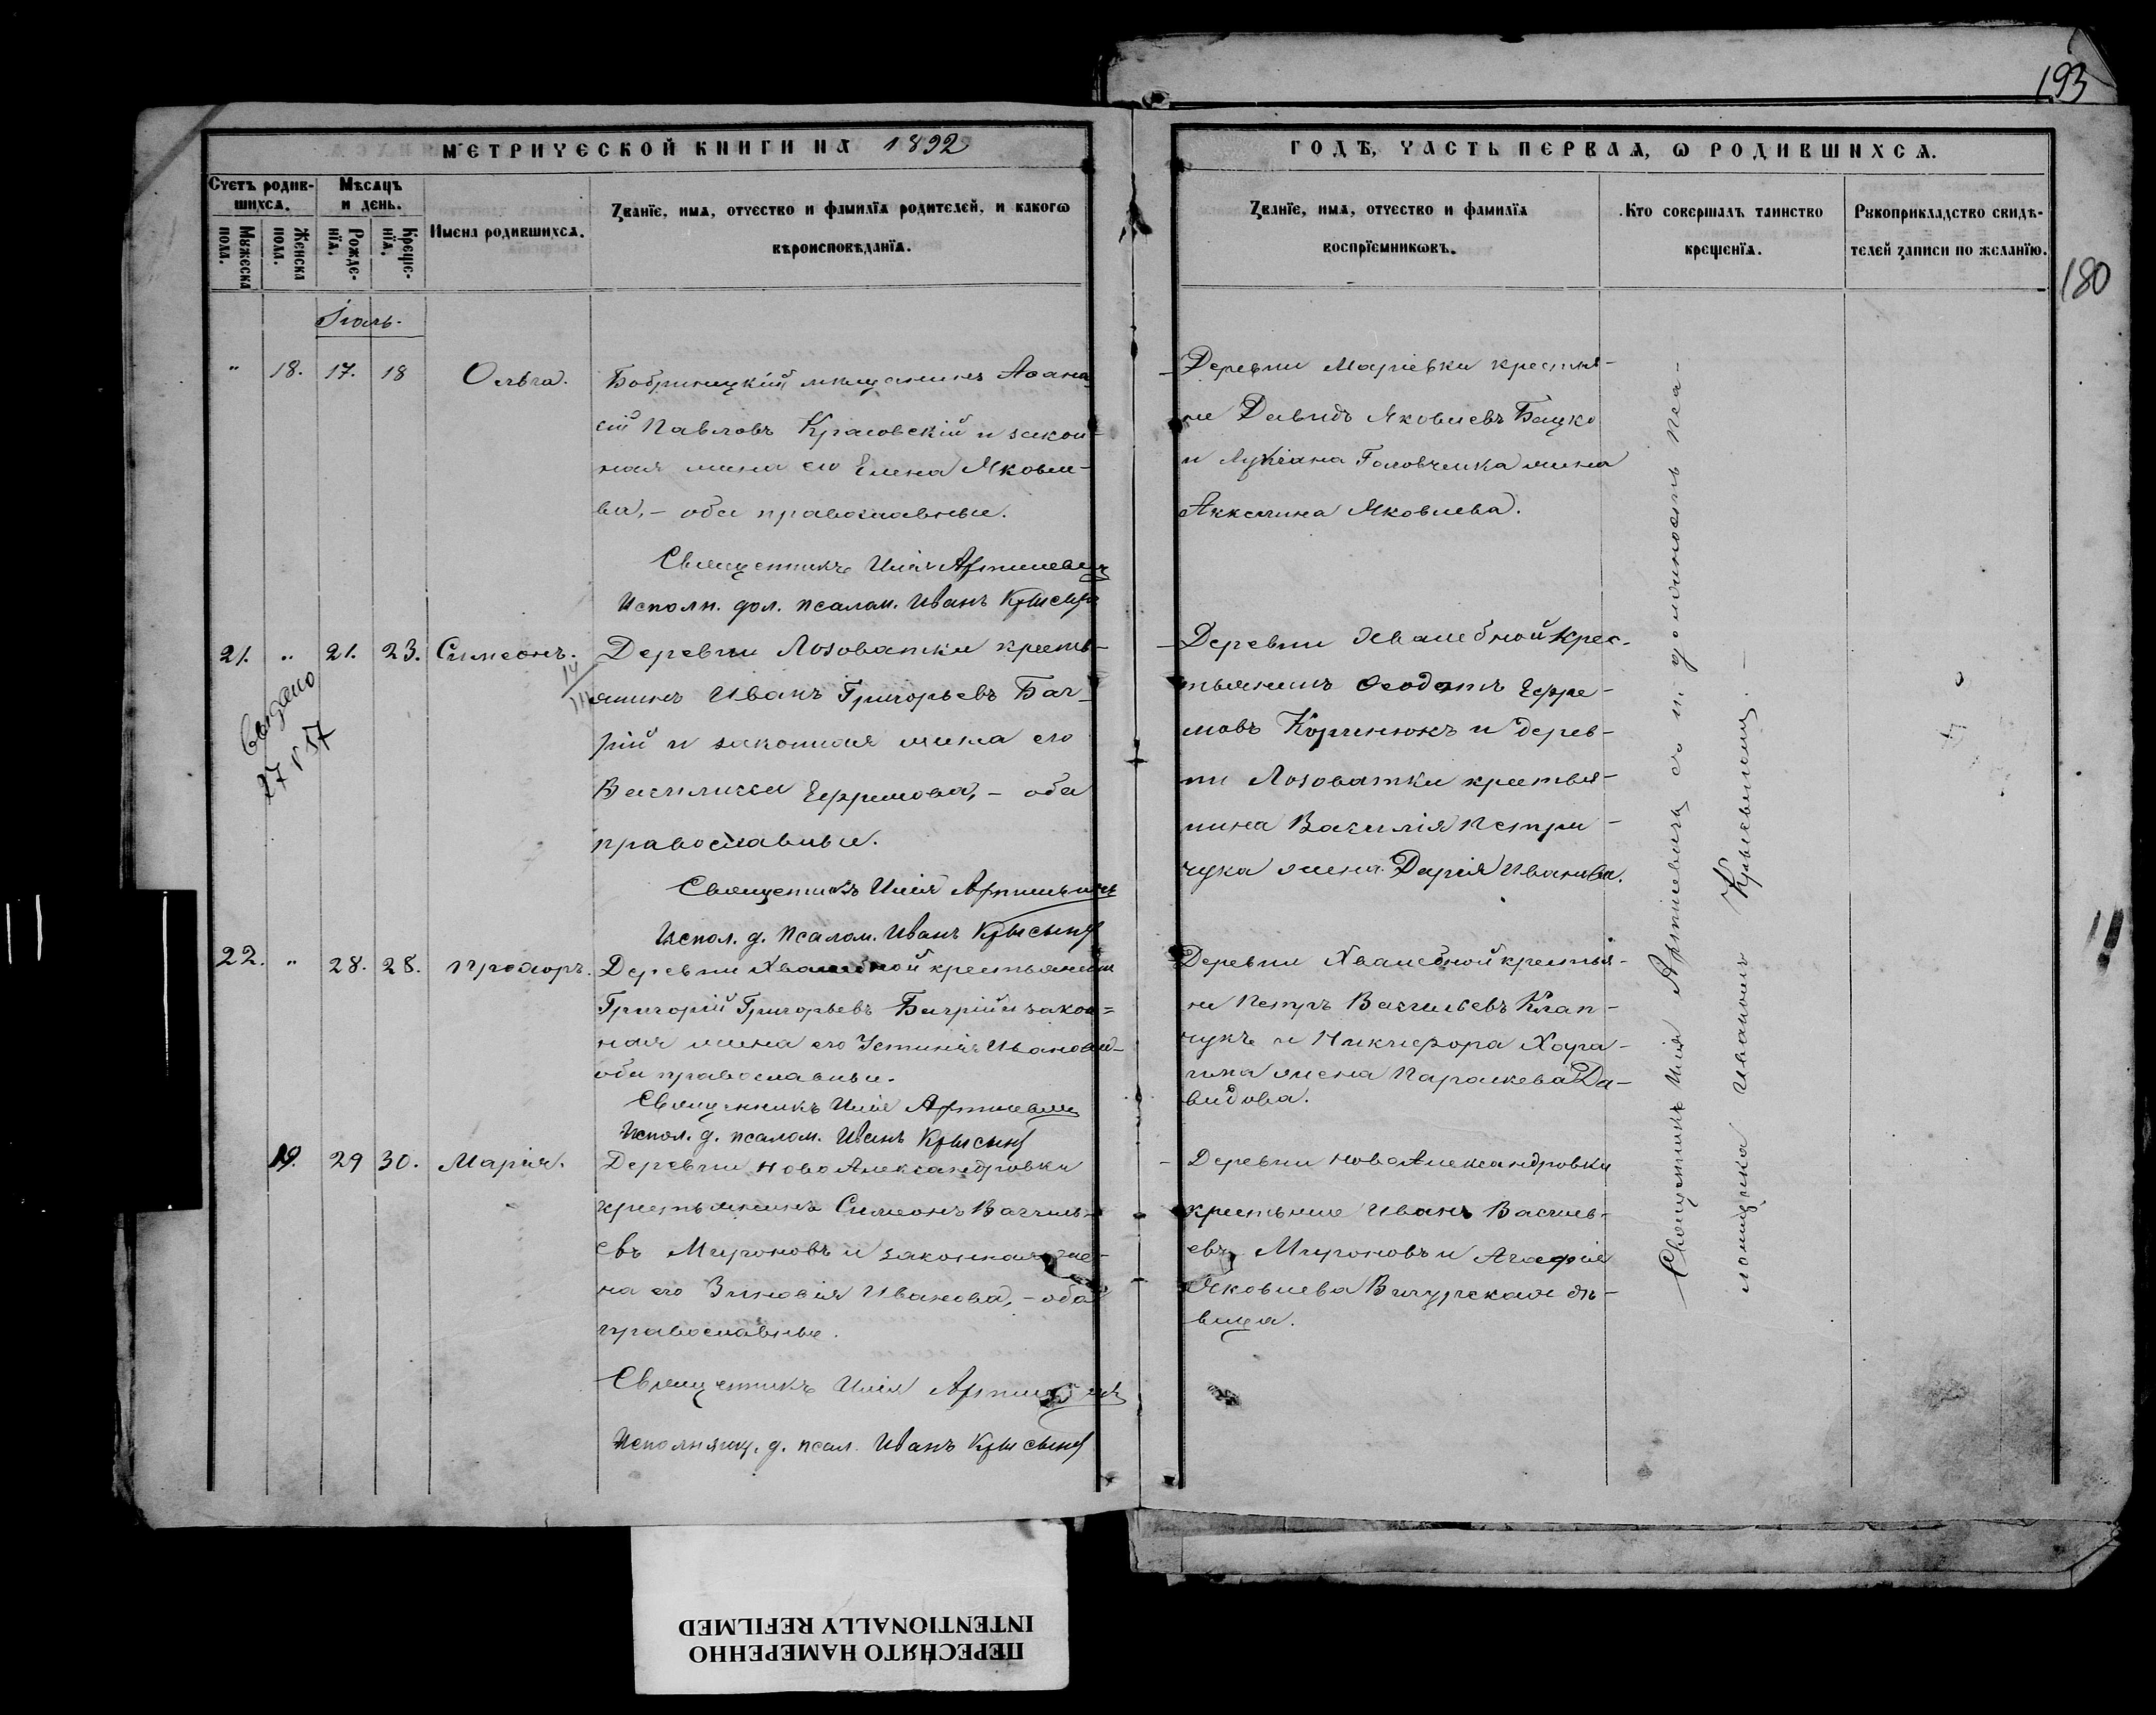 193
МЕТРИЧЕСКОЙ КНИГИ НА 1892
ГОДЪ, ЧАСТЬ ПЕРВАЯ, Ѡ РОДИВШИХСЯ.
180
Счетъ родив-
шихся.
Мужеска
пола.
Женска
пола.
Мѣсяцъ
и день.
Рожде-
нїя.
Креще-
нїя.
Имена родившихся.
Званїе, имя, отчество и фамилїя родителей, и какогѡ
вѣроисповѣданїя.
Званїе, имя, отчество и фамилїя
воспрїемникѡвъ.
Кто совершалъ таинство
крещенїя.
Рукоприкладство свидѣ-
телей записи по желанїю.
Іюль.
" 18. 17. 18 Ольга.
Бобринецкій мѣщанинъ Аѳана-
сій Павловъ Красовскій и закон-
ная жена его Елена Яковле-
ва, - оба православные.
Священникъ Илія Артишевич
Исполн. дол. псалом. Иванъ Крысын
Деревни Маріевки крестья-
не Давидъ Яковлевъ Бацко
и Лукіана Головченка жена
Акилина Яковлева.
21. " 21. 23. Симеонъ.
выдано
27 V 57
Деревни Лозоватки кресть-
янинъ Иванъ Григорьевъ Баг-
рій и законная жена его
Василисса Ефремова, - оба
православные.
Священникъ Илія Артишевичъ
Испол. д. псалом. Иванъ Крысын
Деревни Хвалебной крес-
тьянинъ Ѳеодотъ Ефре-
мовъ и дерев-
ни Лозоватки крестья-
нина Василія Петри-
чука жена Дарія Иванова.
22. " 28. 28. Прохоръ.
Деревни Хвалебной крестьянинъ
Григорій Григорьевъ Багрій и закон=
ная жена его Устинія Иванова-
оба православные.
Священникъ Илія Артишевич
Испол. д. псалом. Иванъ Крысын
Деревни Хвалебной крестья-
не Петръ Васильевъ Клап-
чукъ и Никифора
жена Параскева Да-
видова.
19. 29 30. Марія.
Деревни Ново Александровки
крестьянинъ Симеонъ Василь-
евъ Мироновъ и законная же-
на его Зиновія Иванова, - оба
православные.
Священникъ Илія Артишевич
Исполняющ. д. псал. Иванъ Крысын
Деревни НовоАлександровки
крестьяне Иванъ Василь-
евъ Мироновъ и Агафія
Яковлева дѣ-
вица.
Священникъ Илія Артишевичъ съ и. должность пса-
ломщика Иваномъ Крысынымъ.
ПЕРЕСНЯТО НАМЕРЕННО
INTENTIONALLY REFILMED